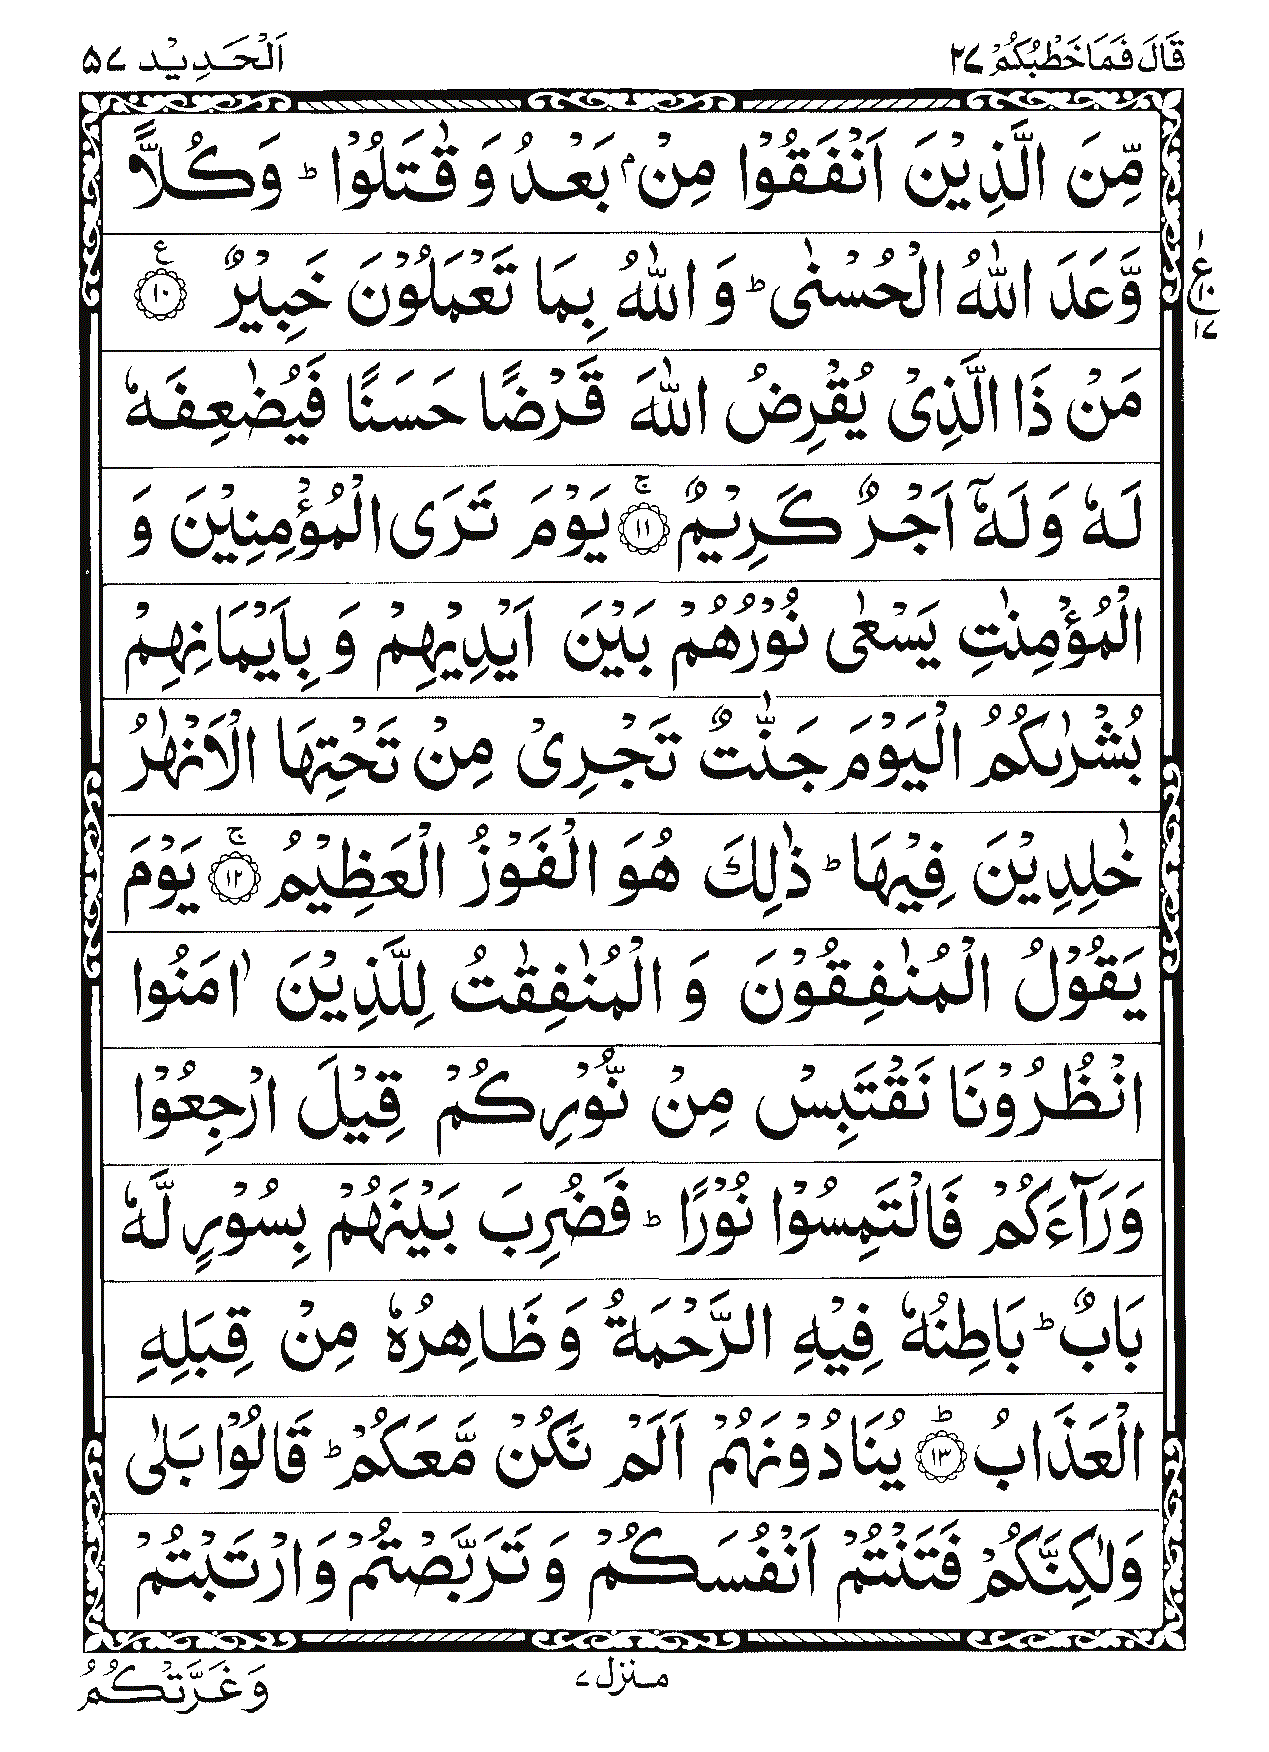 قَالَ فَمَا خَطْبُكُمْ ٢٧
اَلْحَدِيْد ٥٧
مِّنَ الَّذِيْنَ اَنْفَقُوْا مِنْۢ بَعْدُ وَ قٰتَلُوْا ؕ وَكُلًّا
وَّعَدَ اللّٰهُ الْحُسْنٰى ؕ وَ اللّٰهُ بِمَا تَعْمَلُوْنَ خَبِيْرٌ ۧ ١٠
ع ١ ١٠ ١٧
مَنْ ذَا الَّذِيْ يُقْرِضُ اللّٰهَ قَرْضًا حَسَنًا فَيُضٰعِفَهٗ
لَهٗ وَلَهٗۤ اَجْرٌ كَرِيْمٌ ۚ ١١ يَوْمَ تَرَى الْمُؤْمِنِيْنَ وَ
الْمُؤْمِنٰتِ يَسْعٰى نُوْرُهُمْ بَيْنَ اَيْدِيْهِمْ وَ بِاَيْمَانِهِمْ
بُشْرٰىكُمُ الْيَوْمَ جَنّٰتٌ تَجْرِيْ مِنْ تَحْتِهَا الْاَنْهٰرُ
خٰلِدِيْنَ فِيْهَا ؕ ذٰلِكَ هُوَ الْفَوْزُ الْعَظِيْمُ ۚ ١٢ يَوْمَ
يَقُوْلُ الْمُنٰفِقُوْنَ وَ الْمُنٰفِقٰتُ لِلَّذِيْنَ اٰمَنُوا
انْظُرُوْنَا نَقْتَبِسْ مِنْ نُّوْرِكُمْ قِيْلَ ارْجِعُوْا
وَرَآءَكُمْ فَالْتَمِسُوْا نُوْرًا ؕ فَضُرِبَ بَيْنَهُمْ بِسُوْرٍ لَّهٗ
بَابٌ ؕ بَاطِنُهٗ فِيْهِ الرَّحْمَةُ وَ ظَاهِرُهٗ مِنْ قِبَلِهِ
الْعَذَابُ ؕ ١٣ يُنَادُوْنَهُمْ اَلَمْ نَكُنْ مَّعَكُمْ ؕ قَالُوْا بَلٰى
وَلٰكِنَّكُمْ فَتَنْتُمْ اَنْفُسَكُمْ وَ تَرَبَّصْتُمْ وَ ارْتَبْتُمْ
منزل ٧
وَغَرَّتْكُمُ